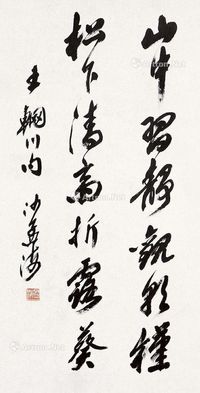 山中習靜觀朝槿
松下清齋折露葵
王輞川句 沙孟海